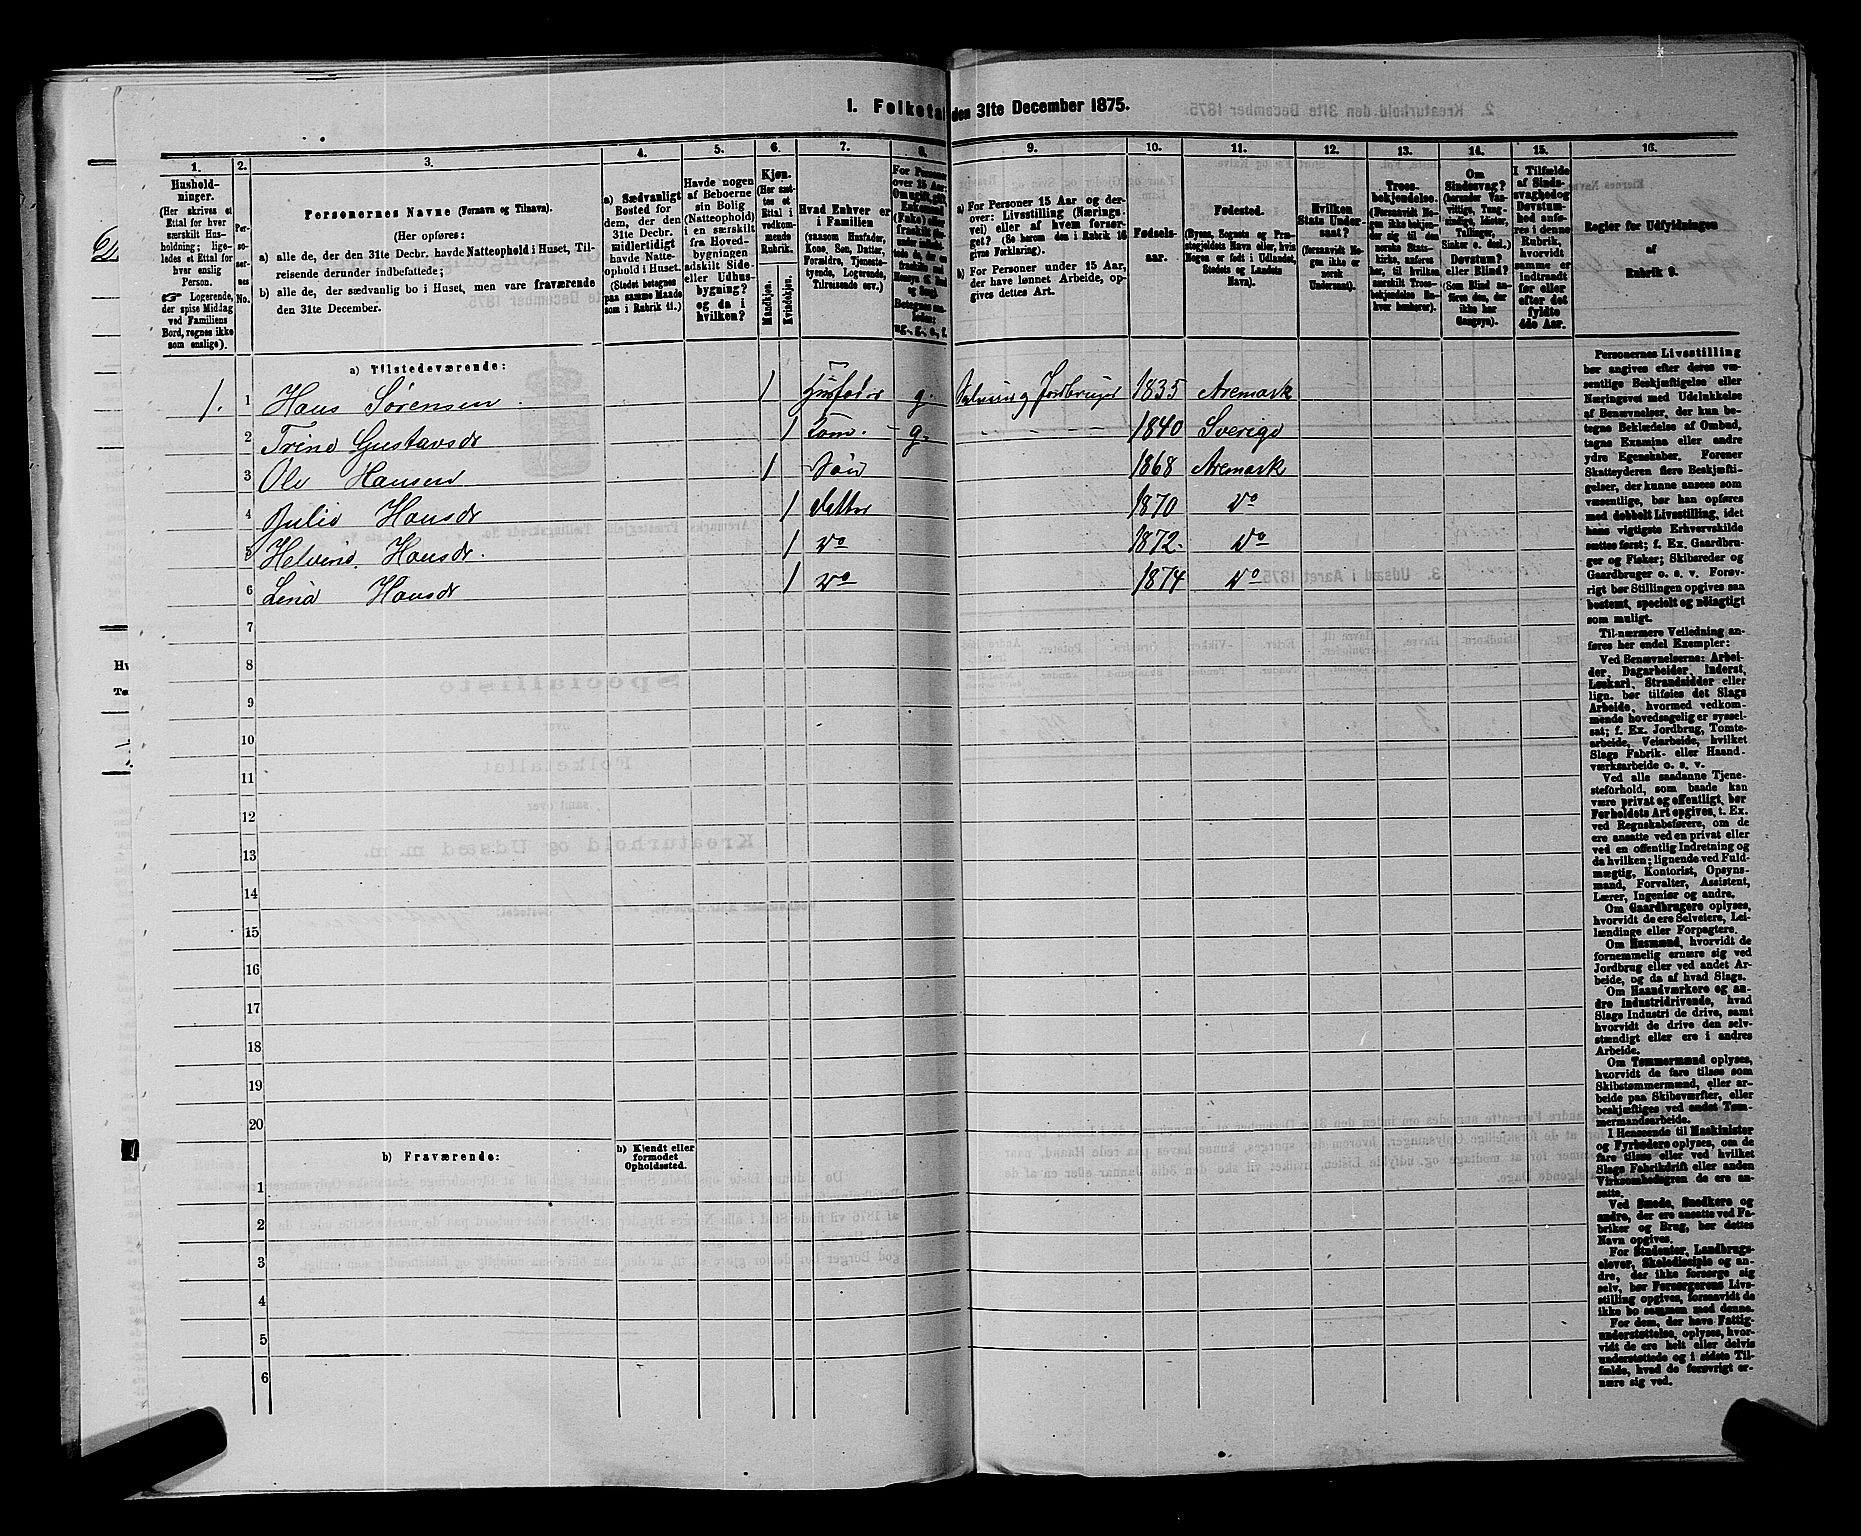 I. Folketal den 31te December 1875.
1. 2. 3. 4. 5. 6. 7. 8. 9. 10. 11. 12. 13. 14. 15. 16.
Hushold-
ninger.
(Her skrives et
Ettal for hver
særskilt Hus-
holdning; lige-
ledes et Ettal for
hver enslig
Person.
☞ Logerende,
der spise Middag
ved Familiens
Bord, regnes ikke
som enslige).
Per-
so-
ner-
nes
No.
Personernes Navne (Fornavn og Tilnavn).
(Her opføres:
a) alle de, der den 31te Decbr. havde Natteophold i Huset, Til-
reisende derunder indbefattede;
b) alle de, der sædvanlig bo i Huset, men vare fraværende
den 31te December.
a) Sædvanligt
Bosted for
dem, der den
31te Decbr.
midlertidigt
havde Natte-
ophold i Huset.
(Stedet betegnes
paa samme Maade
som i Rubrik 11.)
Havde nogen
af Beboerne
sin Bolig
(Natteophold)
i en særskilt
fra Hoved-
bygningen
adskilt Side-
eller Udhus-
bygning?
og da i
hvilken?
Kjøn.
(Her sæt-
tes et
Ettal i
vedkom-
mende
Rubrik.
Mandkjøn.
Kvindekjøn.
Hvad Enhver er
i Familien
(saasom Husfader,
Kone, Søn, Datter,
Forældre, Tjeneste-
tyende, Logerende,
Tilreisende osv.)
For Personer
over 15 Aar:
a) For Personer 15 Aar og der-
over: Livsstilling (Nærings-
vei) eller af hvem forsør-
get? (Se herom den i Rubrik 16
givne Forklaring).
b) For Personer under 15 Aar,
der have lønnet Arbeide, op-
gives dettes Art.
Fødsels-
aar.
Fødested.
(Byens, Sognets og Præ-
stegjeldets Navn eller, hvis
Nogen er født i Udlandet,
Stedets og Landets
Navn).
Hvilken
Stats Under-
saat?
(forsaavidt No-
gen ikke er
norsk
Undersaat).
Troes-
bekjendelse.
(Forsaavidt No-
gen ikke beken-
der sig til den
norske Stats-
kirke, anføres
her, til hvilken
særskilt Troes-
bekjendelse En-
hver henhører).
Om
Sindssvag?
(herunder Van-
vittige, Tung-
sindige, Idioter,
Tullinger,
Sinker o. desl.)
Døvstum?
eller Blind?
(Som Blind an-
føres den, der
ikke har
Gangsyn).
I Tilfælde
af Sinds-
svaghed og
Døvstum-
hed anfø-
res i denne
Rubrik,
hvorvidt
samme er
indtraadt
før eller
efter det
fyldte
4de Aar.
Regler for Udfyldningen
af
Rubrik 9.
a) Tilstedeværende:
1. 1 Hans Sørensen 1 Husfader g. Selveier og Jordbruger 1835 Aremark
2 Trine Gustavsdr 1 Kone g. 1840 Sverige
3 Ole Hansen 1 Søn 1868 Aremark
4 Julie Hansdr 1 Datter 1870 Do
5 Helvine Hansdr. 1 Do 1872. Do
6 Lina Hansdr 1 Do 1874 Do
7
8
9
10
11
12
13
14
15
16
17
18
19
20
b) Fraværende:
b) Kjendt eller
formodet
Opholdssted.
1
2
3
4
5
6
Personernes Livsstilling
bør angives efter deres væ-
sentlige Beskjæftigelse eller
Næringsvei med Udelukkelse
af Benævnelser, der kun be-
tegne Beklædelse af Ombud,
tagne Examina eller andre
ydre Egenskaber. Forener
Skatteyderen flere Beskjæfti-
gelser, der kunne ansees som
væsentlige, bør han opføres
med dobbelt Livsstilling, idet
hans vigtigste Erhvervskilde
sættes først; f. Ex. Gaardbru-
ger og Fisker; Skibsreder og
Gaardbruger o. s. v. Forøv-
rigt bør Stillingen opgives saa
bestemt, specielt og nøiagtigt
som muligt.
Til nærmere Veiledning an-
føres her endel Exempler:
Ved Benævnelserne: Arbei-
der, Dagarbeider, Inderst,
Løskarl, Strandsidder eller
lign. bør tilføies det Slags
Arbeide, hvormed vedkom-
mende hovedsagelig er syssel-
sat; f. Ex. Jordbrug, Tomte-
arbeide, Veiarbeide, hvilket
Slags Fabrik- eller Haand-
værksarbeide o. s. v.
Ved alle saadanne Tjene-
steforhold, som baade kan
være privat og offentligt, bør
Forholdets Art opgives, t. Ex.
ved Regnskabsførere, om de
ere ansatte ved en privat eller
ved en offentlig Indretning og
da hvilken; lignende ved Fuld-
mægtig, Kontorist, Opsyns-
mand, Forvalter, Assistent,
Lærer, Ingeniør og andre.
Om Gaardbrugere oplyses,
hvorvidt de ere Selveiere, Lei-
lændinge eller Forpagtere.
Om Husmænd, hvorvidt de
fornemmelig ernære sig ved
Jordbrug eller ved andet Ar-
beide, og da af hvad Slags.
Om Haandværkere og an-
dre Industridrivende, hvad
Slags Industri de drive, samt
hvorvidt de drive den selv-
stændigt eller ere i andres
Arbeide.
Om Tømmermænd oplyses,
hvorvidt de fare tilsøs som
Skibstømmermænd, eller ar-
beide paa Skibsværfter, eller
beskjæftiges ved andet Tøm-
mermandsarbeide.
I Henseende til Maskinister
og Fyrbødere oplyses, om de
fare tilsøs eller ved hvilket
Slags Fabrikdrift eller anden
Virksomhedsgren de ere an-
satte.
Ved Smede, Snedkere og
andre, der ere ansatte ved Fa-
briker og Brug, bør dettes
Navn opgives.
For Studenter, Landbrugs-
elever, Skoledisciple og an-
dre, der ikke forsørge sig
selv, bør Forsørgerens Livs-
stilling opgives, forsaavidt de
ikke bo sammen med denne.
For dem, der have Fattig-
understøttelse, oplyses, hvor-
vidt de ere helt eller delvis
understøttede og i sidste Til-
fælde, hvad de forøvrigt er-
nære sig ved.